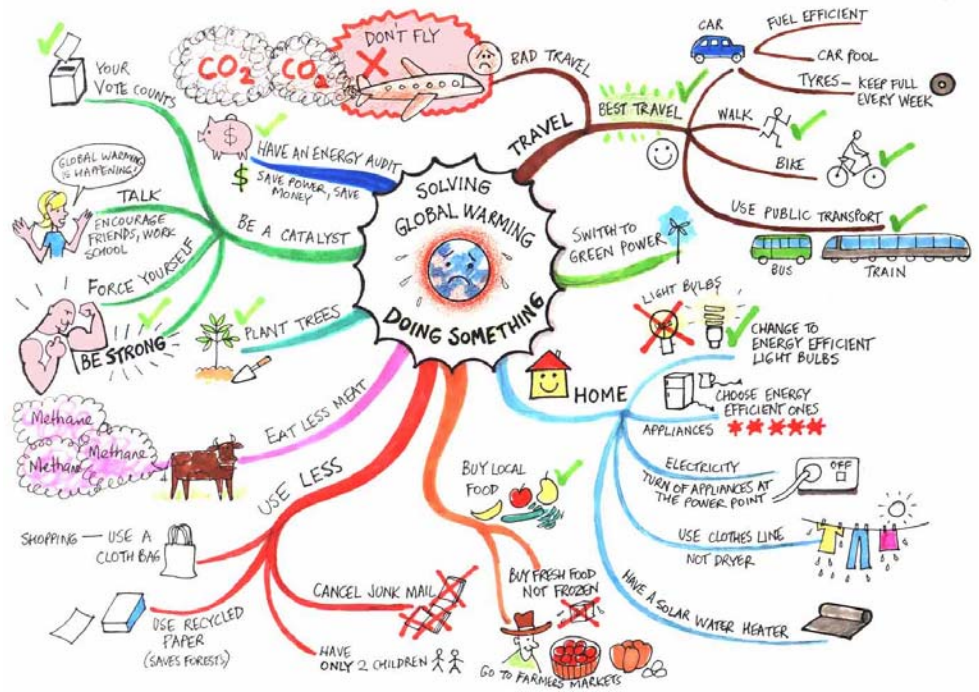 SOLVING
GLOBAL WARMING
DOING SOMETHING
TRAVEL
BAD TRAVEL
DON'T FLY
CO2
CO2
BEST TRAVEL
CAR
FUEL EFFICIENT
CAR POOL
TYRES - KEEP FULL
EVERY WEEK
WALK
BIKE
USE PUBLIC TRANSPORT
BUS
TRAIN
SWITCH TO
GREEN POWER
HOME
LIGHT BULBS
CHANGE TO
ENERGY EFFICIENT
LIGHT BULBS
CHOOSE ENERGY
EFFICIENT ONES
APPLIANCES
ELECTRICITY
TURN OF APPLIANCES AT
THE POWER POINT
OFF
USE CLOTHES LINE
NOT DRYER
HAVE A SOLAR WATER HEATER
BUY LOCAL
FOOD
BUY FRESH FOOD
NOT FROZEN
GO TO FARMERS MARKETS
USE LESS
SHOPPING — USE A
CLOTH BAG
USE RECYCLED
PAPER
(SAVES FORESTS)
CANCEL JUNK MAIL
HAVE
ONLY 2 CHILDREN
EAT LESS MEAT
Methane
Methane
Methane
PLANT TREES
BE A CATALYST
YOUR
VOTE COUNTS
TALK
ENCOURAGE
FRIENDS, WORK
SCHOOL
GLOBAL WARMING
IS HAPPENING!
FORCE YOURSELF
BE STRONG
HAVE AN ENERGY AUDIT
SAVE POWER, SAVE
MONEY
$
$